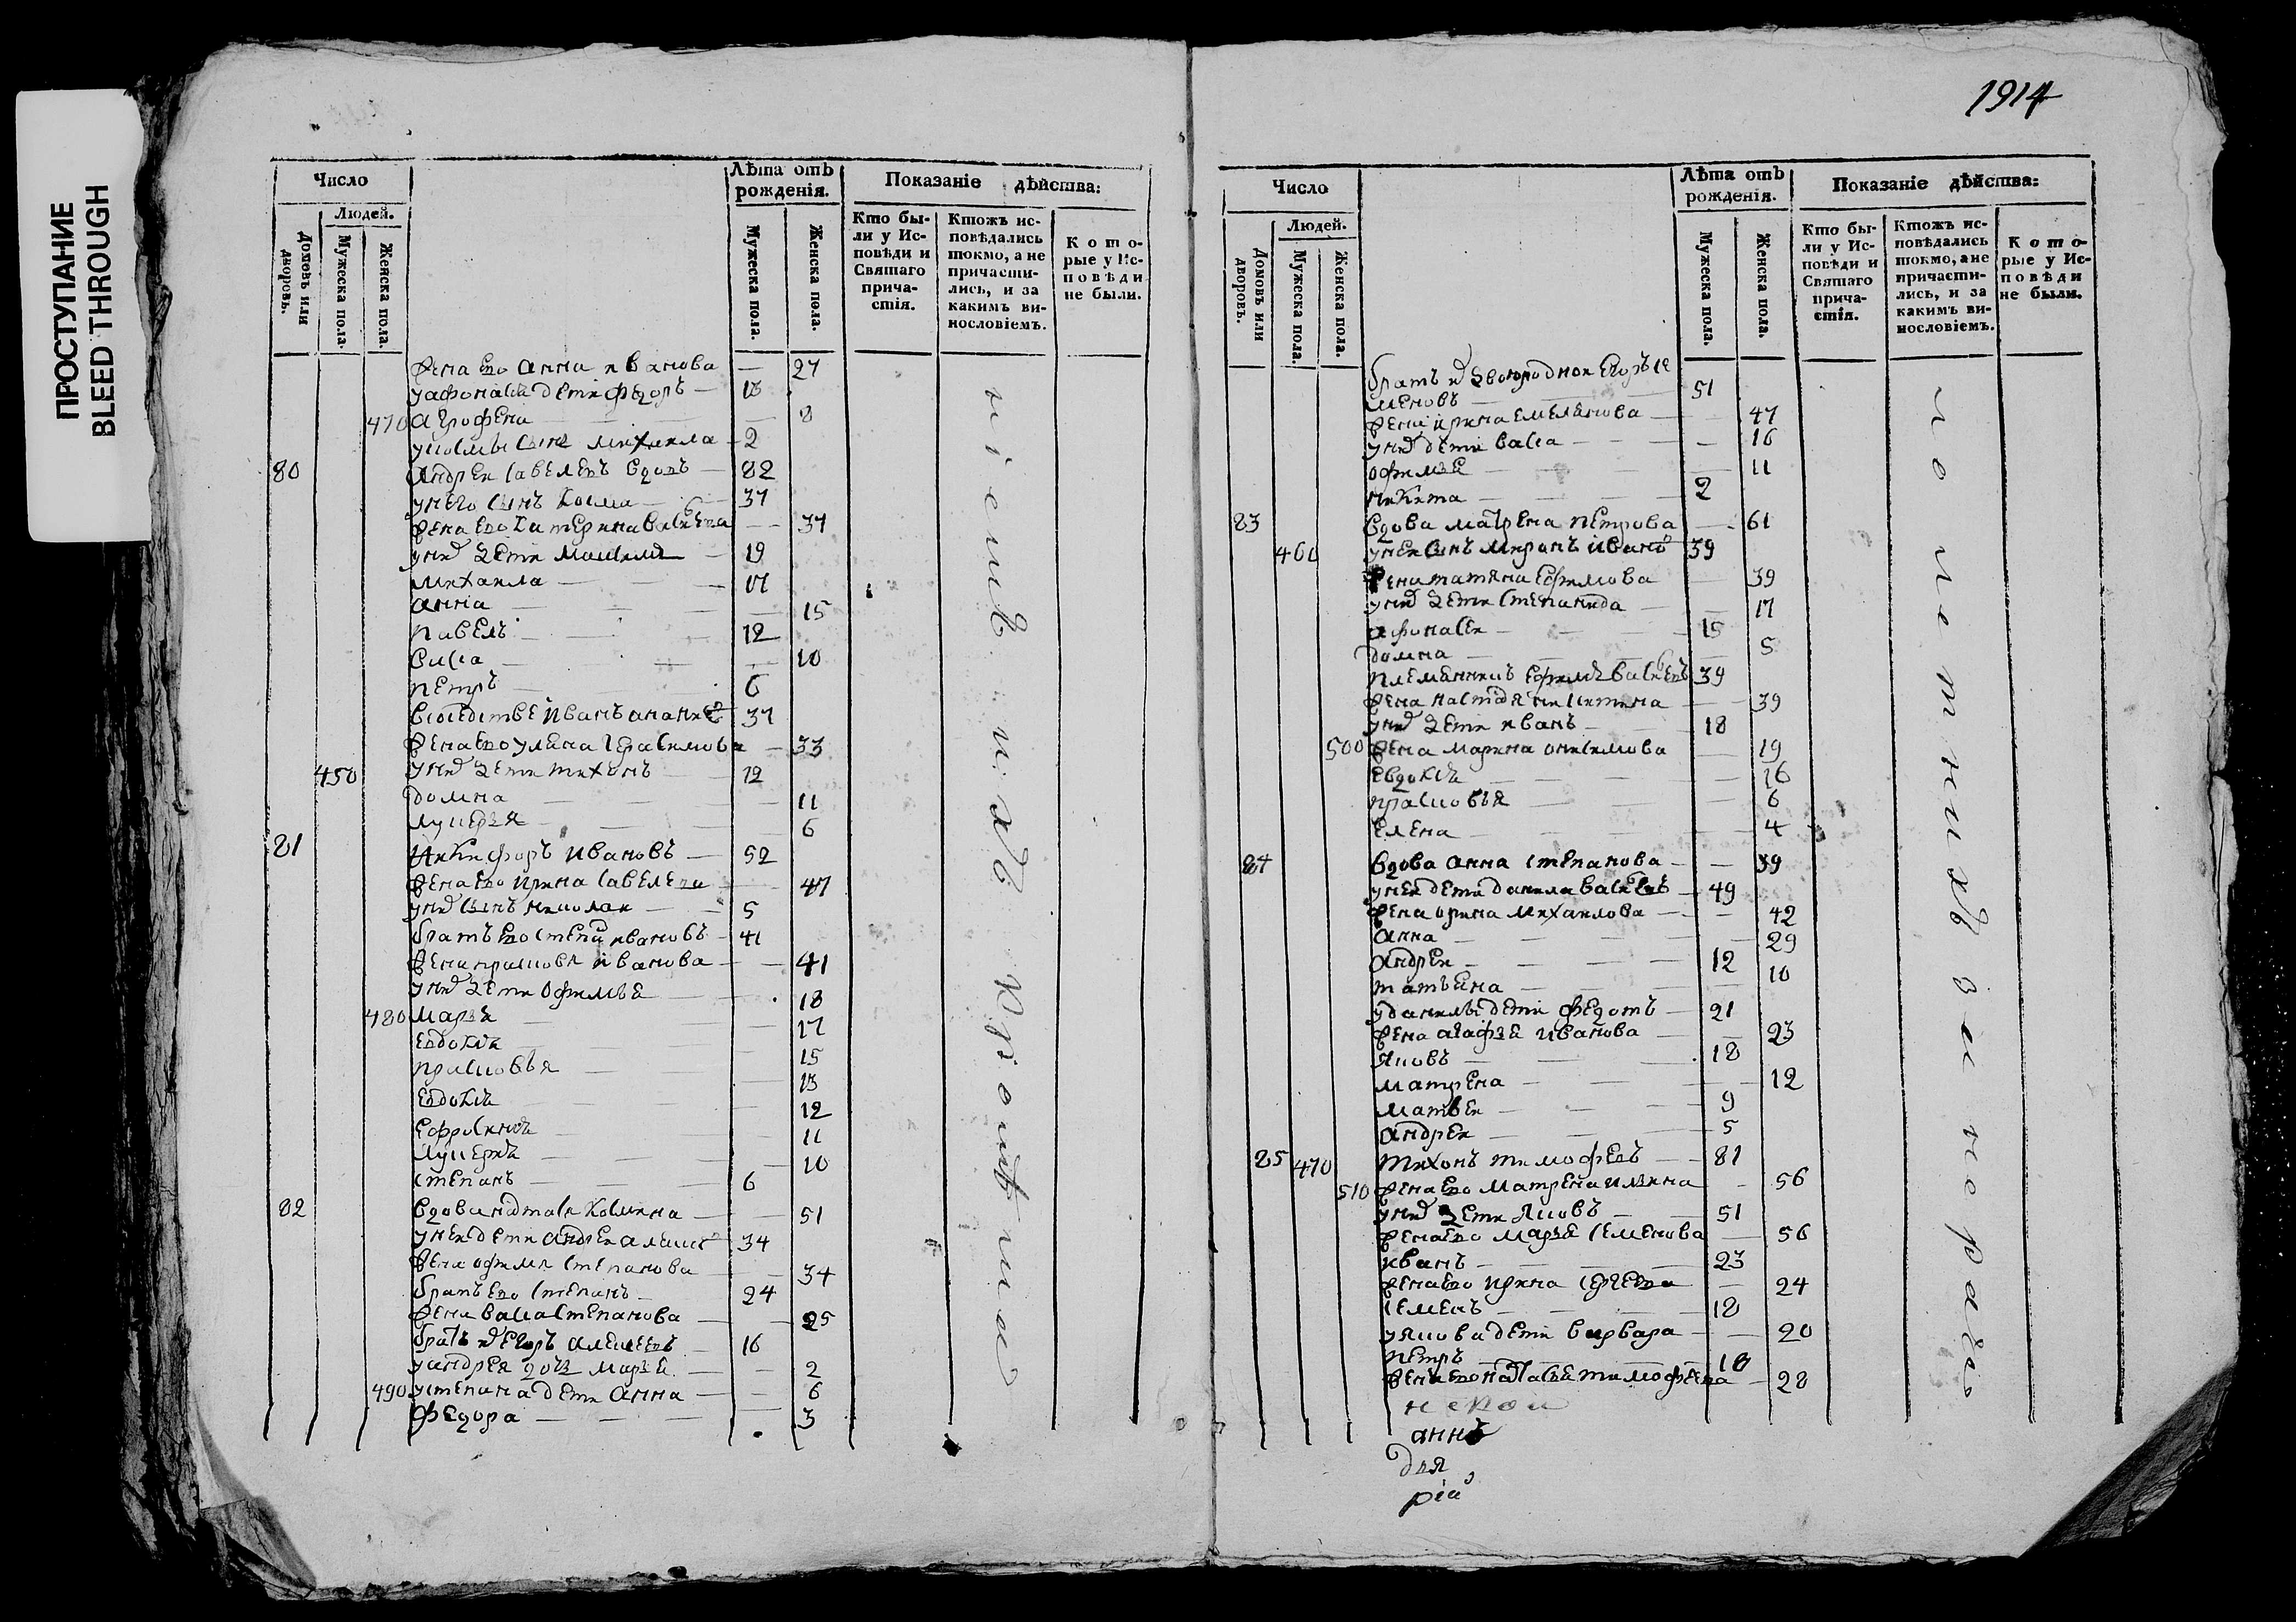 ПРОСТУПАНИЕ
BLEED THROUGH
1914
Число
Людей.
Домовъ или дворовъ.
Мужеска пола.
Женска пола.
Лѣта отъ рожденія.
Мужеска пола.
Женска пола.
Показаніе дѣйства:
Кто были у Исповѣди и Святаго причастія.
Ктожъ исповѣдались токмо, а не причастились, и за какимъ винословіемъ.
Которые у Исповѣди не были.
жена ево анна иванова — 27
уафонасия дети федоръ — 13
470 агрофена — 8
укосмы сынъ михаила — 2
80 андрей савелевъ вдовъ — 82
унего сынъ косма — 37
жена ево катерина васильева — 37
унихъ дети максимъ — 19
михаила — 17
анна — 15
павелъ — 12
васса — 10
петръ — 6
всоседстве иванъ ананиевъ 37
жена ево улиана герасимова — 33
450 унихъ дети тихонъ 12
домна — 11
лукерья — 6
81 никифоръ ивановъ — 52
жена ево ирина савелева — 47
унихъ сынъ николаи — 5
братъ ево степанъ ивановъ — 41
жена прасковя иванова — 41
унихъ дети офимья — 18
480 марья — 17
евдокия — 15
прасковья — 13
евдокия — 12
ефросиния — 11
лукерия — 10
степанъ — 6
82 вдова настася космина — 51
унеи дети андреи алексеевъ 34
жена офимя степанова — 34
братъ ево степанъ — 24
жена васса степанова — 25
братъ ихъ егоръ алексеевъ — 16
уандрея дочь марья — 2
490 устепана дети анна — 6
федора — 3
Число
Людей.
Домовъ или дворовъ.
Мужеска пола.
Женска пола.
Лѣта отъ рожденія.
Мужеска пола.
Женска пола.
Показаніе дѣйства:
Кто были у Исповѣди и Святаго причастія.
Ктожъ исповѣдались токмо, а не причастились, и за какимъ винословіемъ.
Которые у Исповѣди не были.
братъ ихъ двоюродной егоръ се
меновъ — 51
жена ирина емелянова — 47
унихъ дети васса — 16
офимья — 11
никита — 2
83 вдова матрена петрова — 61
460 унеи сынъ миронъ ивановъ 39
жена татяна ефимова — 39
унихъ дети степанида — 17
афонасеи — 15
домна — 5
племянникъ ефимъ васильевъ 39
жена настася никитина — 39
унихъ дети иванъ — 18
500 жена марина онисимова — 19
евдокия — 16
прасковья — 6
елена — 4
84 вдова анна степанова — 39
унеи дети данила васильевъ — 49
жена орина михаилова — 42
анна — 29
андреи — 12
татьяна — 10
уданилы дети федотъ — 21
жена агафья иванова — 23
яковъ — 18
матрена — 12
матвеи — 9
андреи — 5
85 470 тихонъ тимофеевъ — 81
510 жена ево матрена илина — 56
унихъ дети яковъ — 51
жена ево марья семенова — 56
иванъ — 23
жена ево ирина сергеева — 24
семенъ — 18
уякова дети варвара — 20
петръ — 18
жена ево наталья тимофеева — 28
аннъ
дия
рій